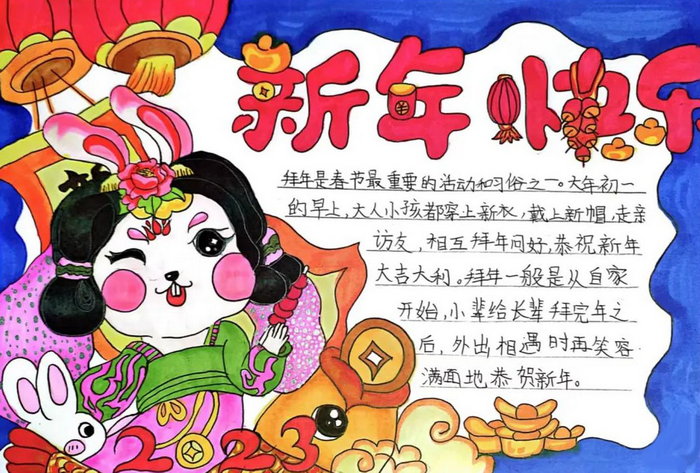 新年快乐
拜年是春节最重要的活动和习俗之一。大年初一
的早上，大人小孩都穿上新衣，戴上新帽，走亲
访友，相互拜年问好，恭祝新年
大吉大利。拜年一般是从自家
开始，小辈给长辈拜完年之
后，外出相遇时再笑容
满面地恭贺新年。
2023